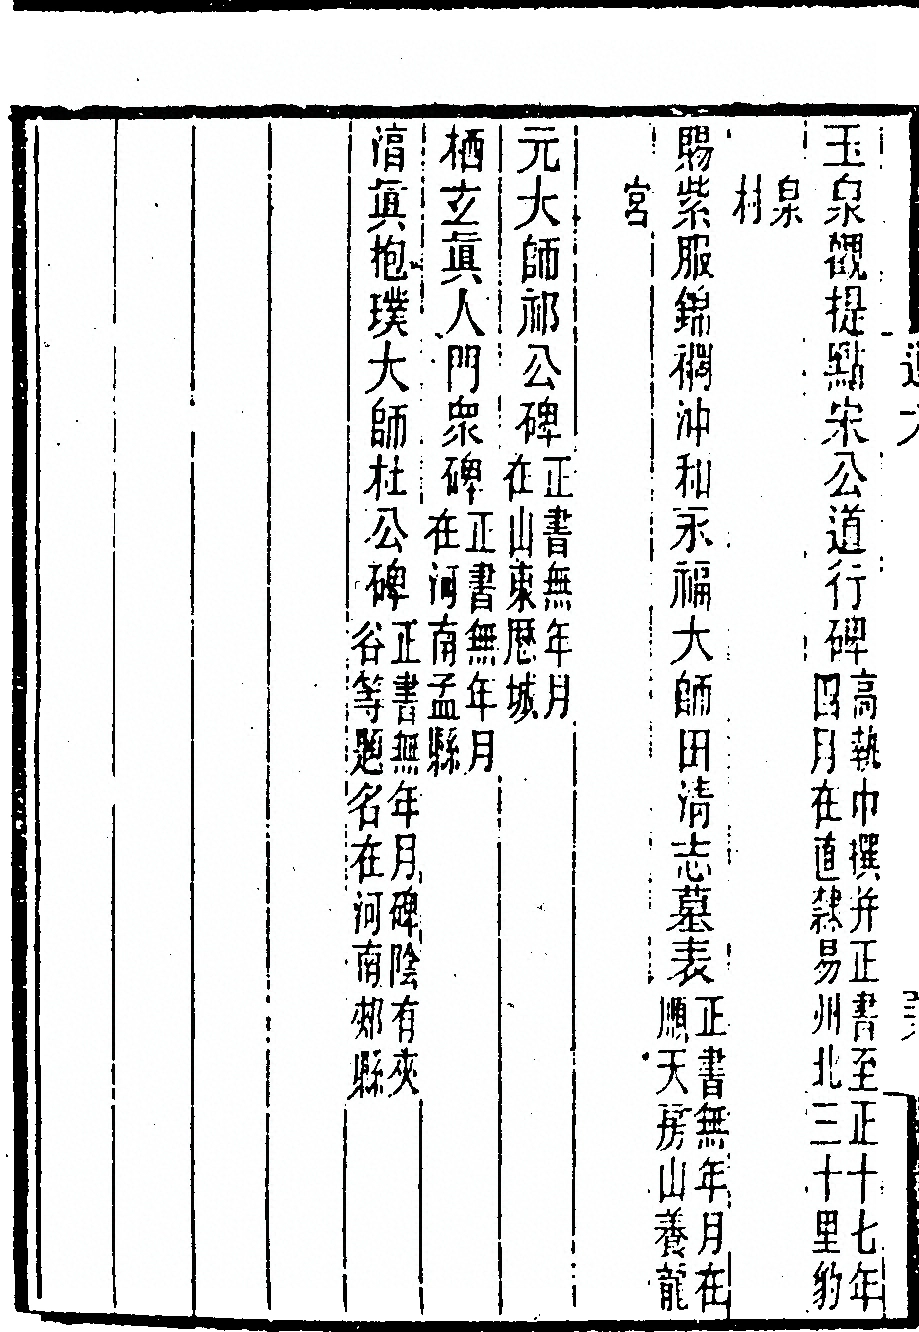 玉泉觀提點宋公道行碑高執巾撰并正書至正十七年四月在直隸易州北三十里豹
泉村
賜紫服錦襴沖和永福大師田清志墓表正書無年月在順天房山養龍
宮
元大師祁公碑正書無年月在山東歷城
栖玄眞人門衆碑正書無年月在河南孟縣
眞抱璞大師杜公碑正書無年月碑陰有夾谷等題名在河南郟縣